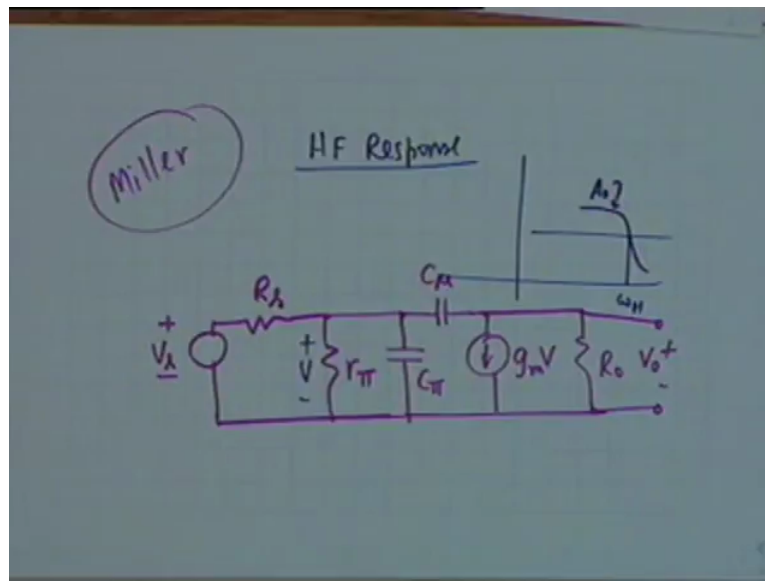 Miller
HF Response
A₀
ω_H
C_μ
R_s
+
V_s
+
V
-
r_π
C_π
g_m V
R_o
V_o
+
-